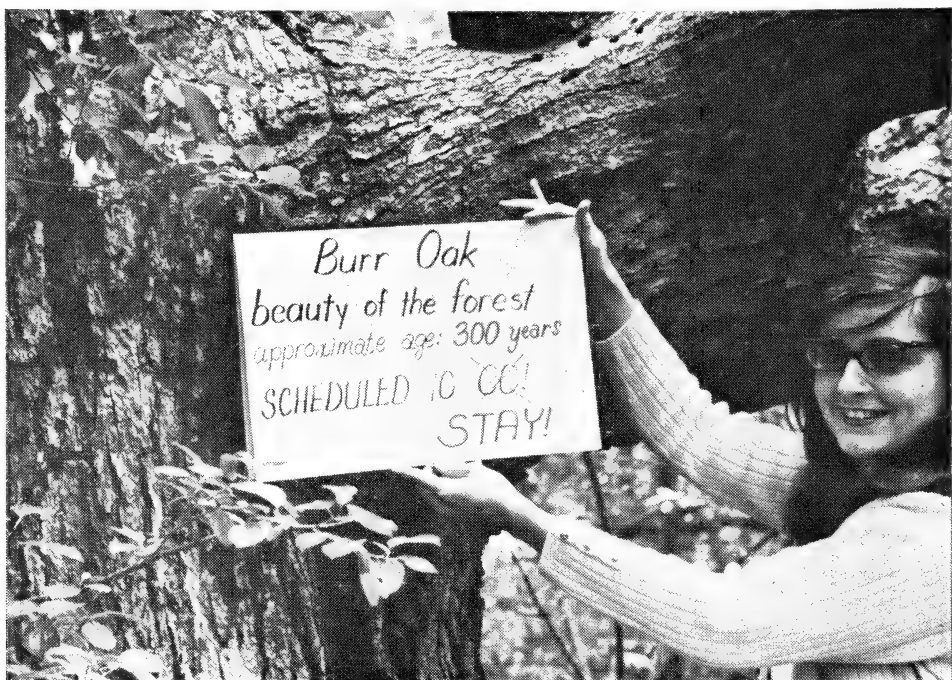 Burr Oak
beauty of the forest
approximate age: 300 years
SCHEDULED TO GO!
STAY!